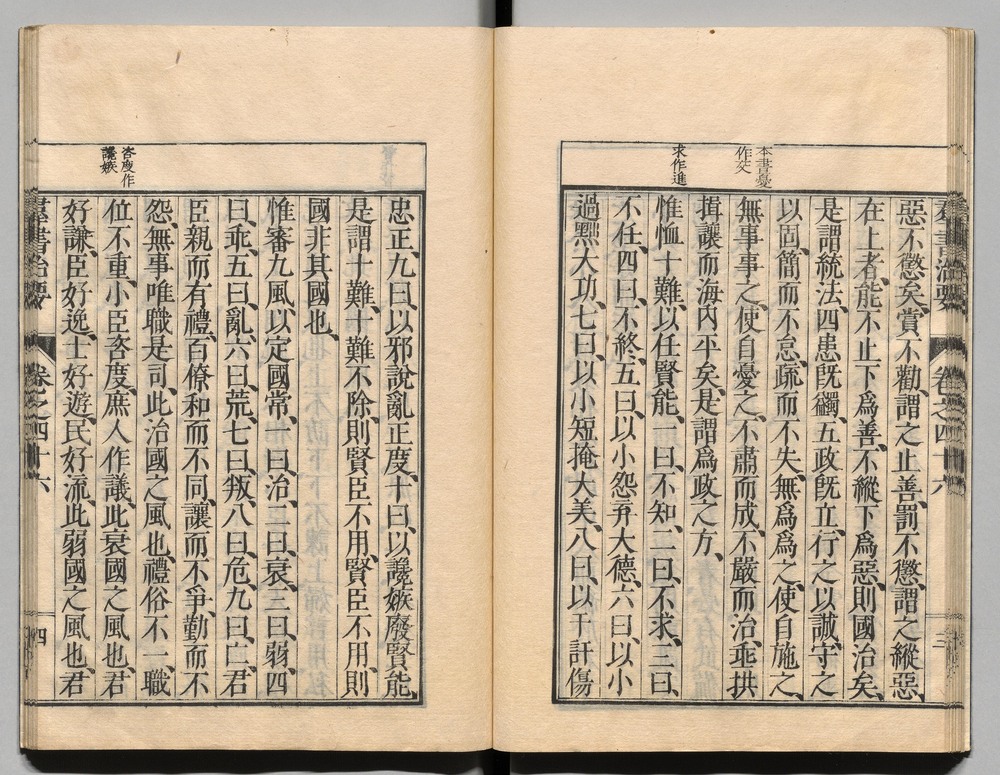 羣書治要 卷之四十六 三
惡不懲矣、賞不勸、謂之止善、罰不懲、謂之縱惡、
在上者、能不止下爲善、不縱下爲惡、則國治矣、
是謂統法、四患旣蠲、五政旣立、行之以誠、守之
以固、簡而不怠、疏而不失、無爲爲之、使自施之、
本書憂
作交
無事事之、使自憂之、不肅而成、不嚴而治、垂拱
揖讓而海內平矣、是謂爲政之方、
求作進
惟恤十難、以任賢能、一曰、不知、二曰、不求、三曰、
不任、四曰、不終、五曰、以小怨弃大德、六曰、以小
過黜大功、七曰、以小短掩大美、八曰、以干訐傷
忠正、九曰、以邪說亂正度、十曰、以讒嫉廢賢能、
是謂十難、十難不除、則賢臣不用、賢臣不用、則
國非其國也、
惟審九風、以定國常、一曰治、二曰衰、三曰弱、四
曰乖、五曰亂、六曰荒、七曰叛、八曰危、九曰亡、君
臣親而有禮、百僚和而不同、讓而不爭、勤而不
怨、無事唯職是司、此治國之風也、禮俗不一、職
咨度作
讒嫉
位不重、小臣咨度、庶人作議、此衰國之風也、君
好謙、臣好逸、士好遊、民好流、此弱國之風也、君
羣書治要 卷之四十六 四